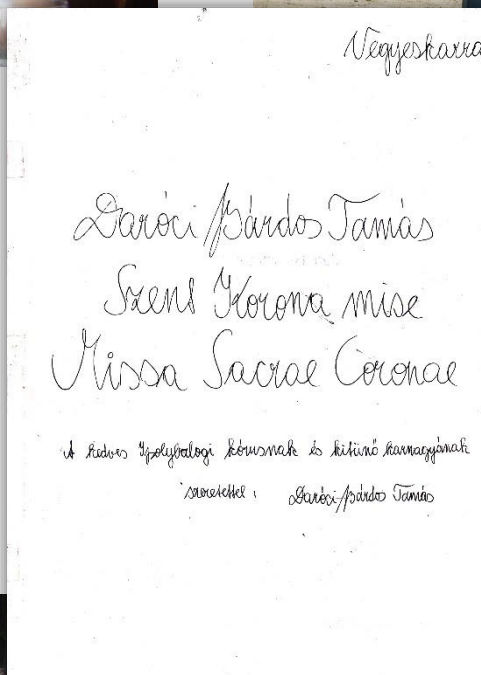 Vegyeskarra
Daróci Bárdos Tamás
Szent Korona mise
Missa Sacrae Coronae
A kedves Ipolybalogi kórusnak és kitünő karnagyának
szeretettel: Daróci Bárdos Tamás